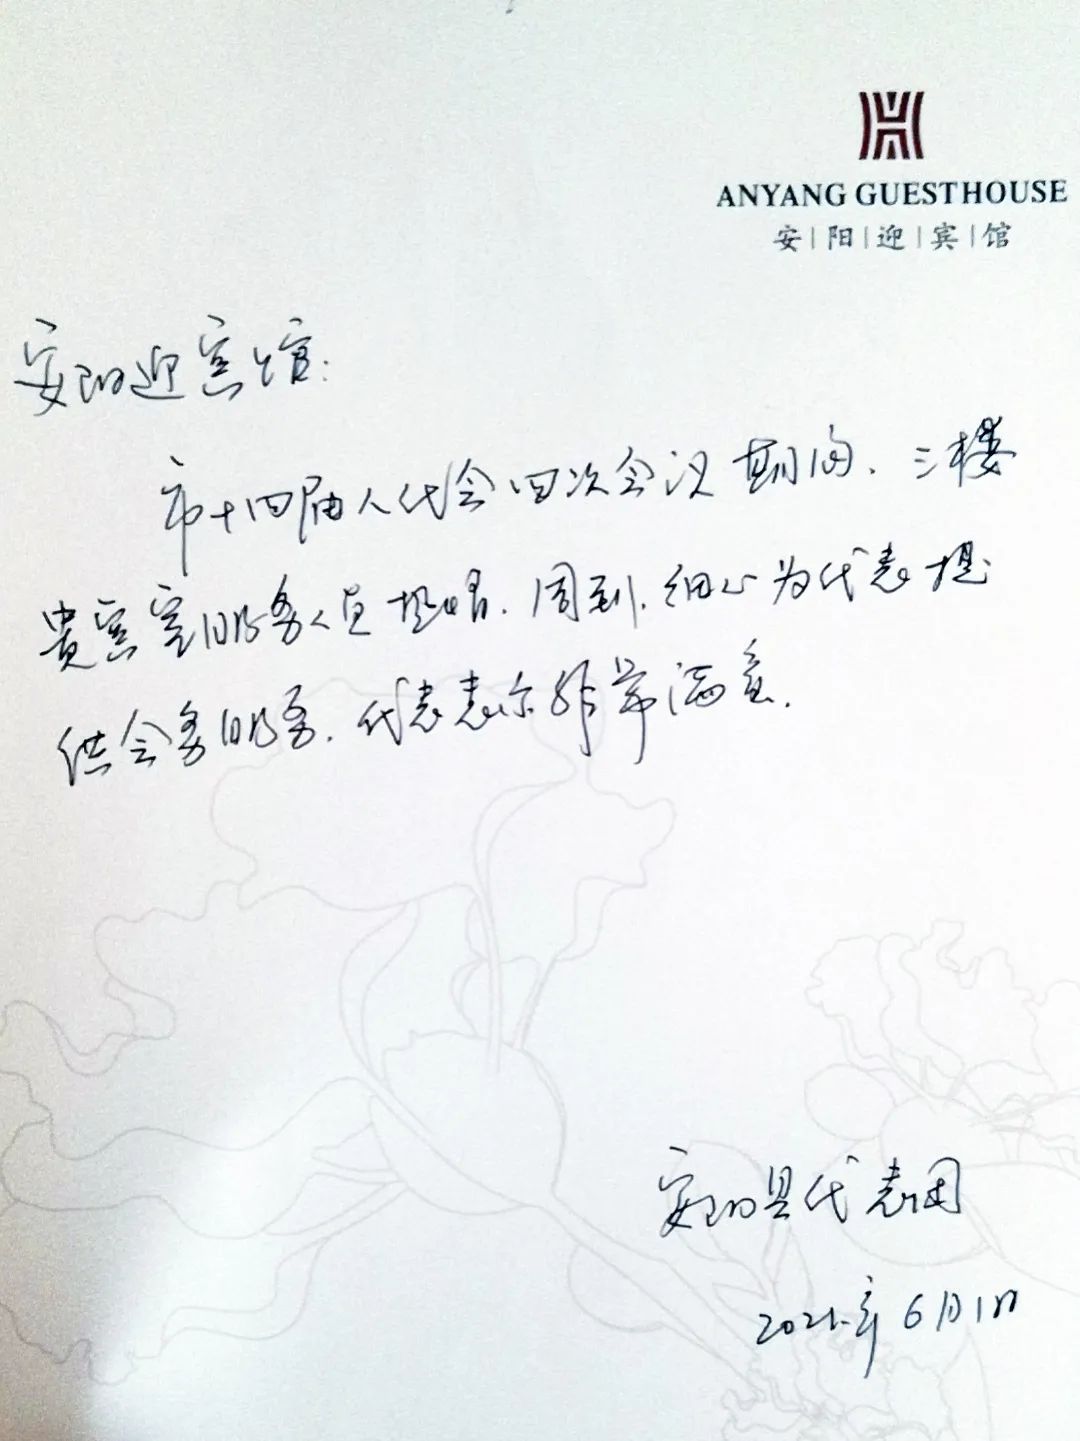 ANYANG GUESTHOUSE
安|阳|迎|宾|馆
安阳迎宾馆:
市十四届人代会四次会议期间、三楼
贵宾室服务人员热情、周到、细心为代表提
供会务服务、代表表示非常满意.
安阳县代表团
2021.年6月1日